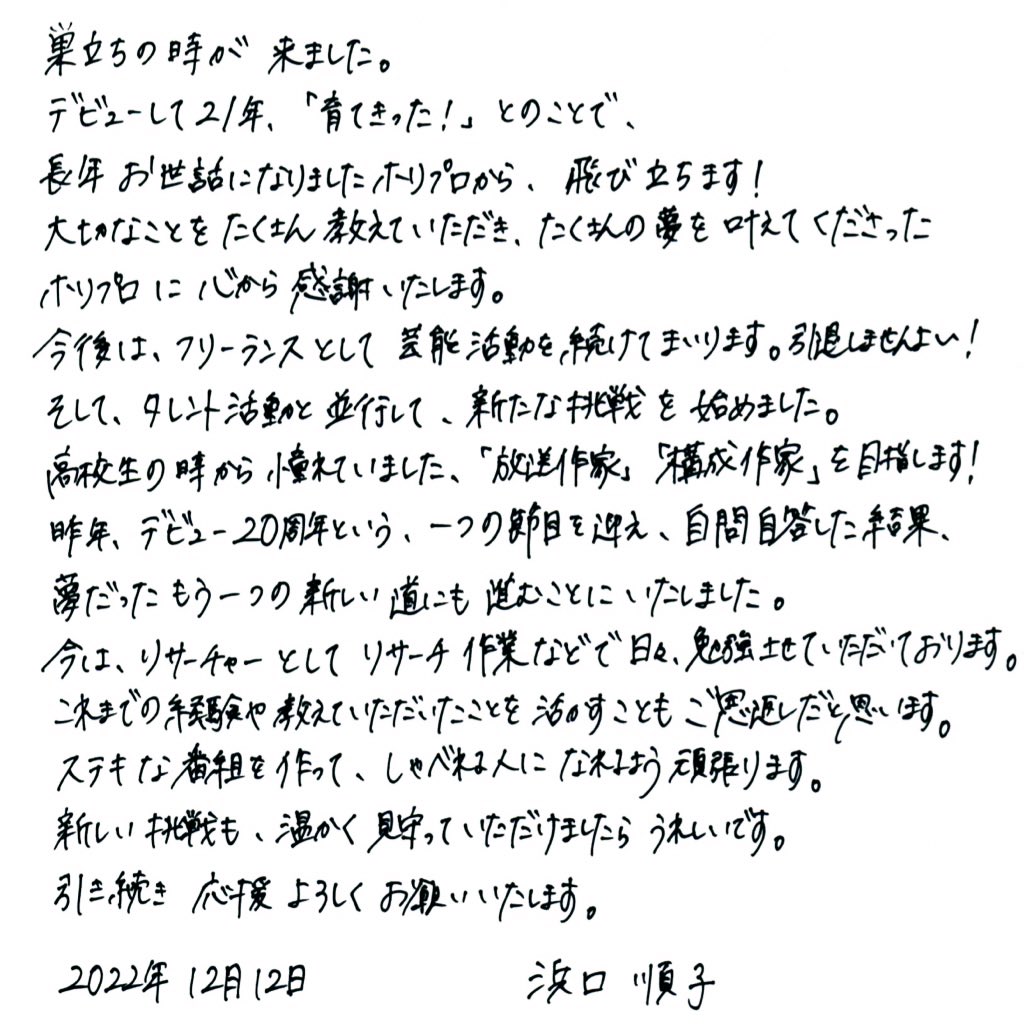 巣立ちの時が来ました。
デビューして21年、「育てきった!」とのことで、
長年お世話になりましたホリプロから、飛び立ちます!
大切なことをたくさん教えていただき、たくさんの夢を叶えてくださった
ホリプロに心から感謝いたします。
今後は、フリーランスとして芸能活動を続けてまいります。引退しませんよい!
そして、タレント活動と並行して、新たな挑戦を始めました。
高校生の時から憧れていました、「放送作家」「構成作家」を目指します!
昨年、デビュー20周年という、一つの節目を迎え、自問自答した結果、
夢だったもう一つの新しい道にも進むことにいたしました。
今は、リサーチャーとしてリサーチ作業などで日々、勉強させていただいております。
これまでの経験や教えていただいたことを活かすこともご恩返しだと思います。
ステキな番組を作って、しゃべれる人になれるよう頑張ります。
新しい挑戦も、温かく見守っていただけましたらうれしいです。
引き続き応援よろしくお願いいたします。
2022年12月12日 浜口順子